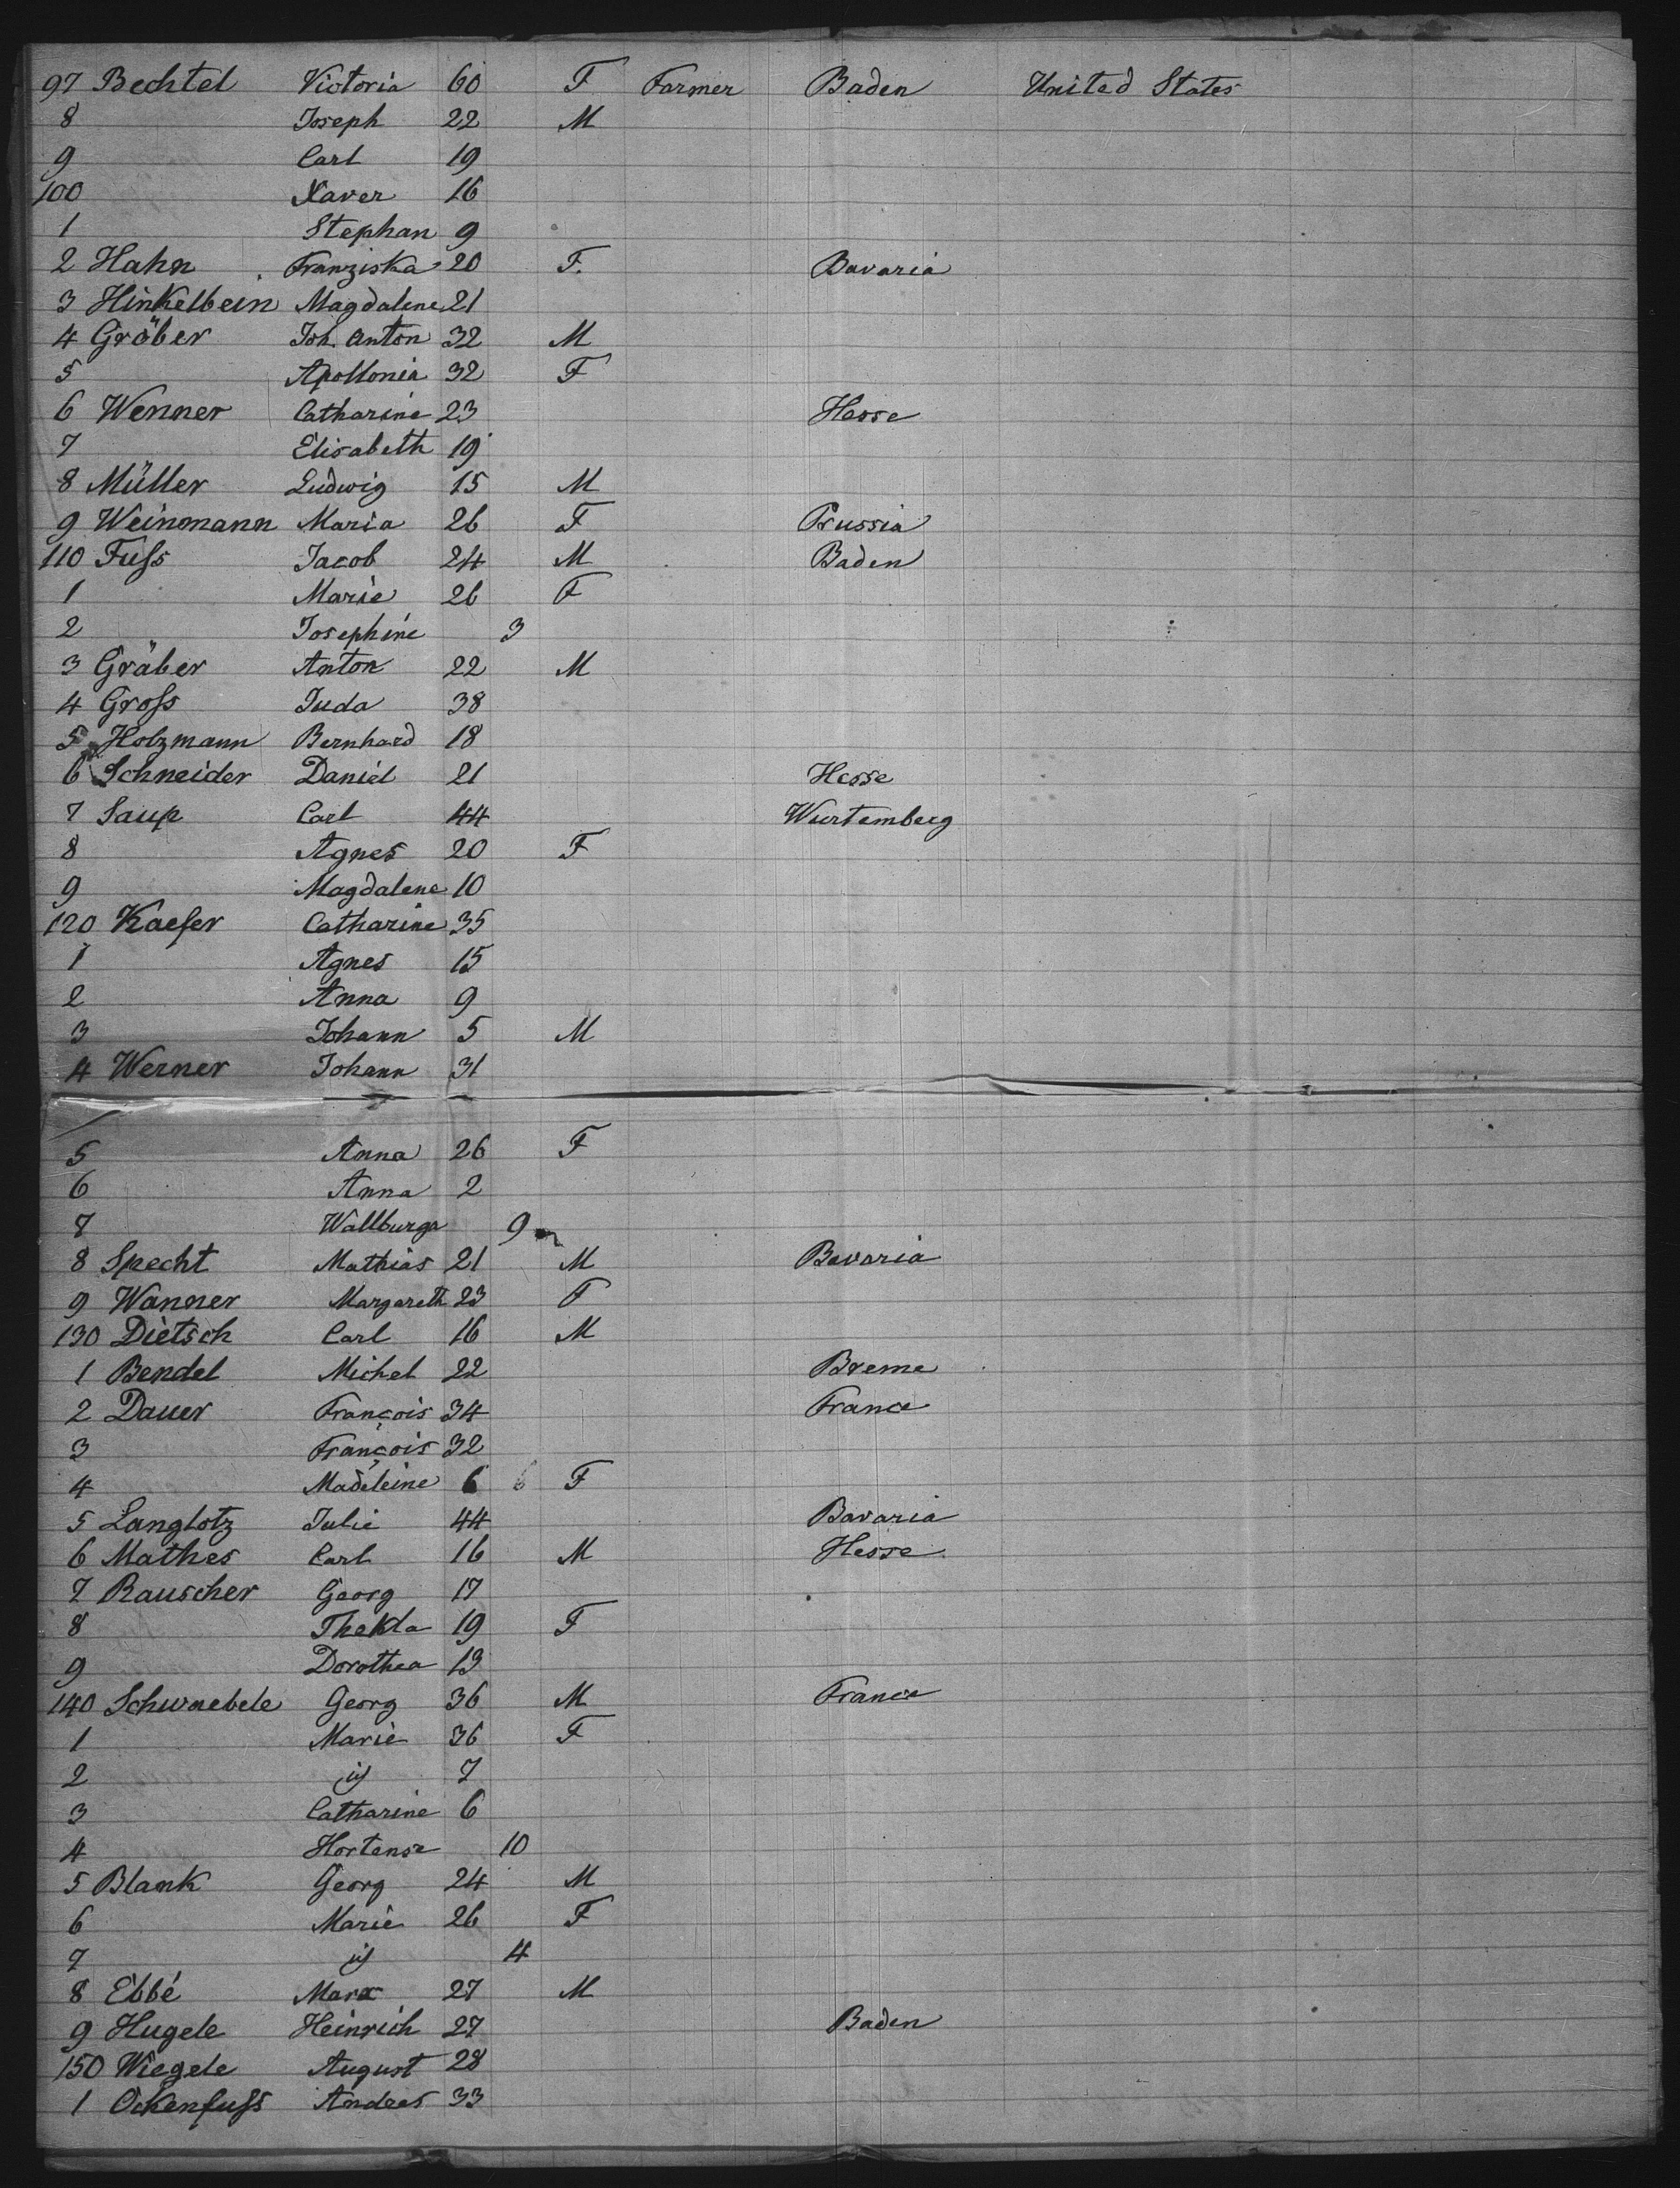 97 Bechtel Victoria 60 F Farmer Baden United States
8 Joseph 22 M
9 Carl 19
100 Xaver 16
1 Stephan 9
2 Hahn Franziska 20 F. Bavaria
3 Hinkelbein Magdalene 21
4 Gräber Joh. Anton 32 M
5 Apollonia 32 F
6 Wenner Catharine 23 Hesse
7 Elisabeth 19
8 Müller Ludwig 15 M
9 Weinmann Maria 26 F Prussia
110 Fuſs Jacob 24 M Baden
1 Marie 26 F
2 Josephine 3
3 Gräber Anton 22 M
4 Groſs Juda 38
5 Holzmann Bernhard 18
6 Schneider Daniel 21 Hesse
7 Saup Carl 44 Wurtemberg
8 Agnes 20 F
9 Magdalene 10
120 Kaefer Catharine 35
1 Agnes 15
2 Anna 9
3 Johann 5 M
4 Werner Johann 31
5 Anna 26 F
6 Anna 2
7 Wallburga 9
8 Specht Mathias 21 M Bavaria
9 Wanner Margareth 23 F
130 Dietsch Carl 16 M
1 Bendel Michel 22 Breme
2 Dauer François 34 France
3 François 32
4 Madeleine 6 6 F
5 Langlotz Julie 44 Bavaria
6 Mathes Carl 16 M Hesse
7 Rauscher Georg 17
8 Thekla 19 F
9 Dorothea 13
140 Schwaebele Georg 36 M France
1 Marie 36 F
2 id 7
3 Catharine 6
4 Hortense 10
5 Blank Georg 24 M
6 Marie 26 F
7 id 4
8 Ebbé Marx 27 M
9 Hugele Heinrich 27 Baden
150 Wiegele August 28
1 Ockenfuſs Andres 33